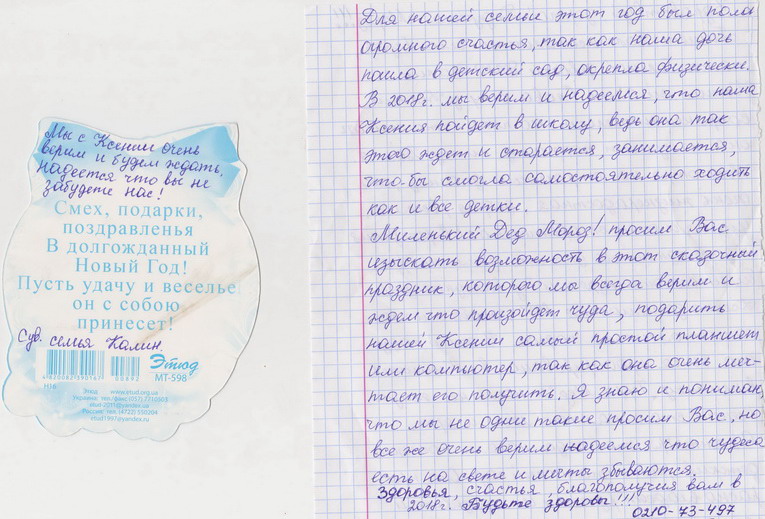 Мы с Ксенией очень
верим и будем ждать,
надеется что вы не
забудете нас!
Смех, подарки,
поздравленья
В долгожданный
Новый Год!
Пусть удачу и веселье
он с собою
принесет!
Сув. семья Калин.
Этюд
4820082590167 00692
МТ-598
Н16
Этюд www.etud.org.ua
Украина: тел./факс (057) 7210303
etud-2011@yandex.ru
Россия: тел. (4722) 550204
etud1997@yandex.ru
Для нашей семьи этот год был полон
огромного счастья, так как наша дочь
пошла в детский сад, окрепла физически.
В 2018г. мы верим и надеемся, что наша
Ксения пойдет в школу, ведь она так
этого ждет и старается, занимается,
что-бы смогла самостоятельно ходить
как и все детки.
Миленький Дед Мороз! просим Вас
изыскать возможность в этот сказочный
праздник, которого мы всегда верим и
ждем что произойдет чуда, подарить
нашей Ксении самый простой планшет
или компьютер, так как она очень меч-
тает его получить. Я знаю и понимаю,
что мы не одни такие просим Вас, но
все же очень верим надеемся что чудеса
есть на свете и мечты сбываются.
Здоровья, счастья, благополучия вам в
2018г. Будьте здоровы!!!
0210-73-497